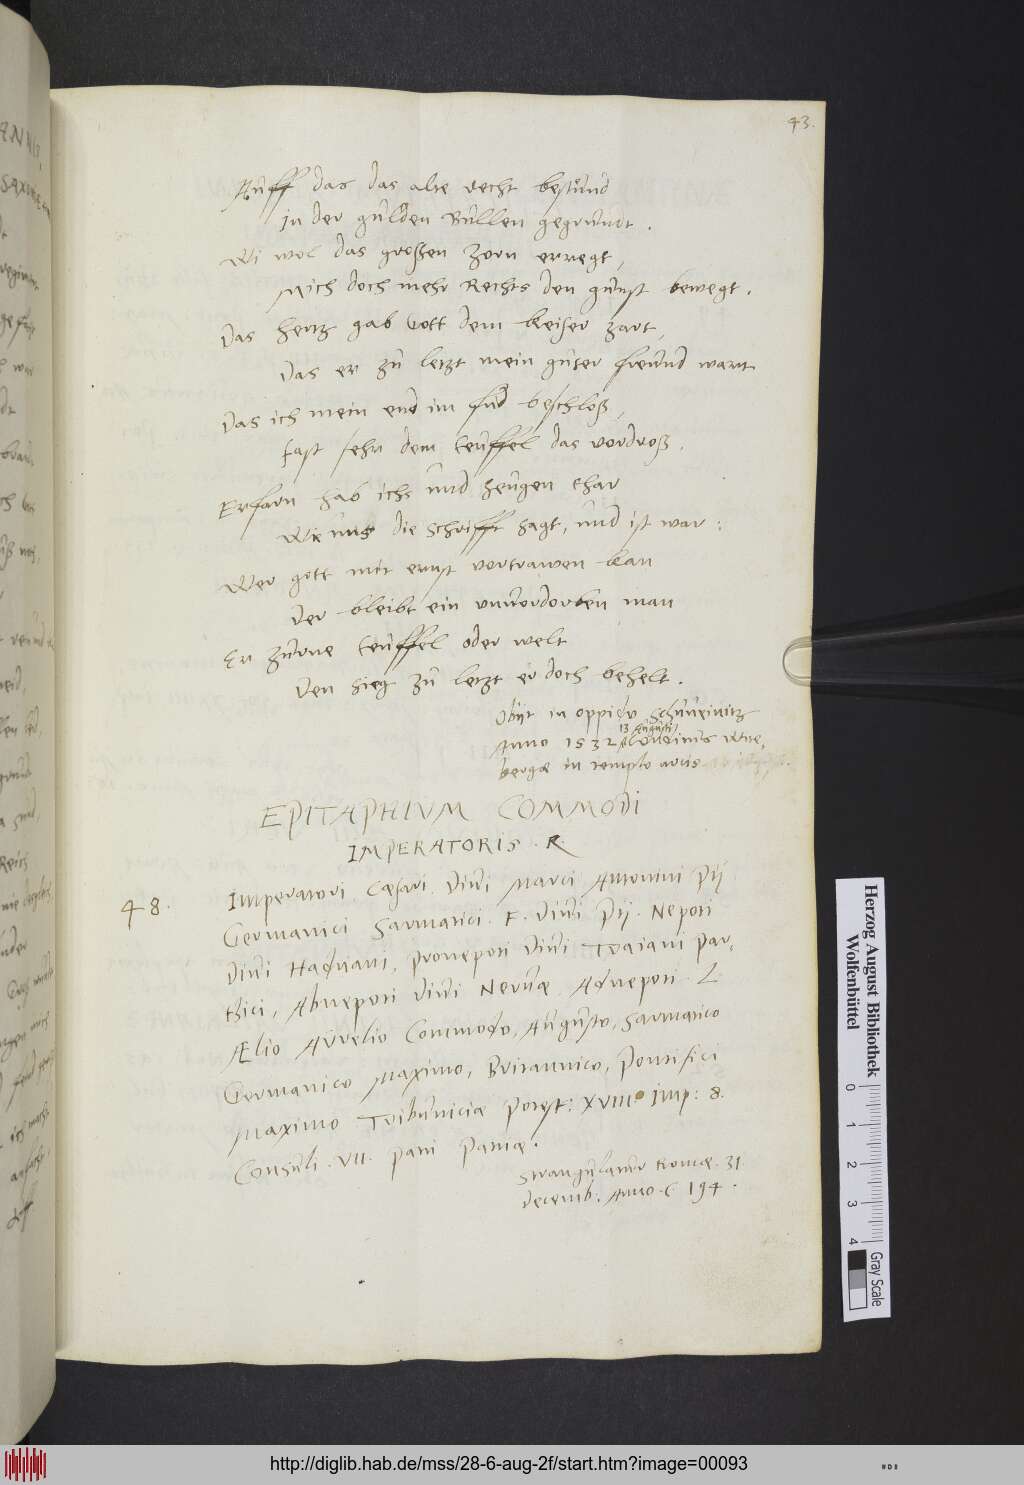 43.
Auff das das alte recht bestünd
in der gülden Büllen gegründt.
Wi wol das grossen zorn erregt,
Mich doch mehr Rechts den günst bewegt.
Das hertz gab Gott dem keiser zart,
Das er zü letzt mein güter freünd wart
Das ich mein end im frid beschloß,
fast sehr dem teüffel das vordroß.
Erfarn hab ichs ünd zeügen thar
Wie üns die schrifft sagt, ünd ist war:
Wer gott mit ernst vortrawen kan
Der bleibt ein unüerdorben man
Er zürne teüffel oder welt
Den sieg zü letzt er doch behelt.
Obijt in oppido Schüueinitz
13 Aügüsti
Anno 1532 Witte,
bergæ in templo arcis
EPITAPHIVM COMMODI
IMPERATORIS. R.
48.
Imperatori Cæsari Diüi Marci Antonini Pij
Germanici Sarmatici. F. Diüi Pij. Nepoti
Diüi Hadriani, Pronepoti Diüi Traiani Par,
thici, Abnepoti Diüi Nerüæ Adnepoti. L.
Ælio Aürelio Commodo, Aügüsto, Sarmatico
Germanico Maximo, Britannico, Pontifici
Maximo Tribüniciæ Potest: XVIII Imp: 8.
Consüli. VII. patri patriæ.
Strangülatür Romæ. 31.
Decemb. Anno. C 194.
ANNIS,
Herzog August Bibliothek
Wolfenbüttel
0 1 2 3 4
Gray Scale
http://diglib.hab.de/mss/28-6-aug-2f/start.htm?image=00093